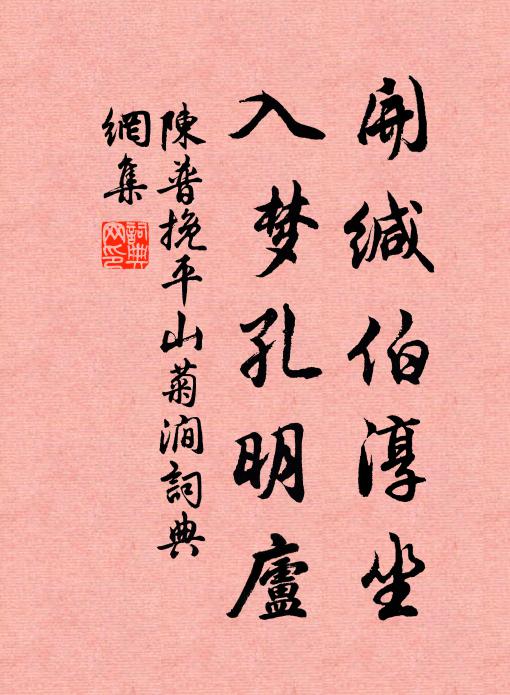 開缄伯淳坐
入梦孔明廬
陳普挽平山菊澗詞典
網集
詞典
网印